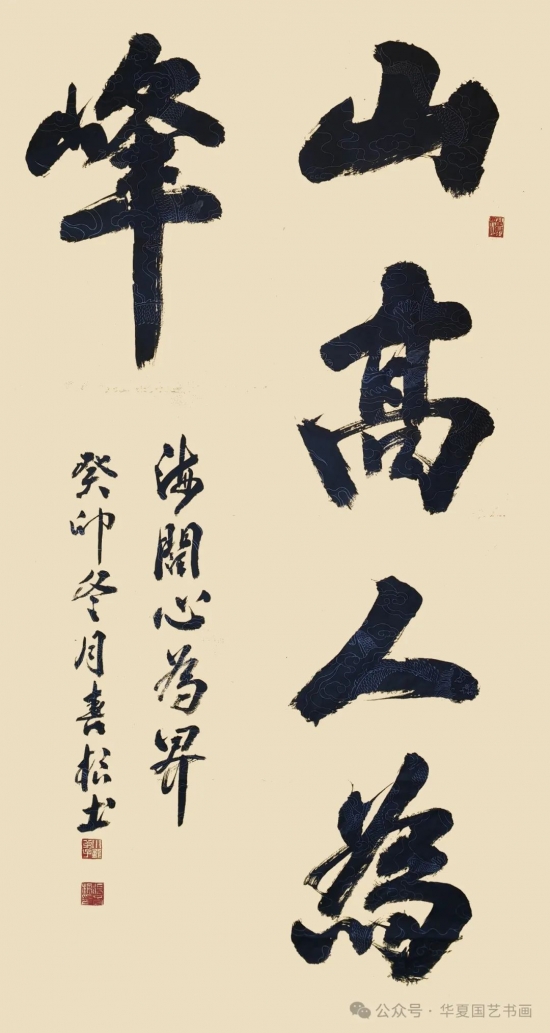 山高人為
峰
海闊心為界
癸卯冬月喜松书
公众号·华夏国艺书画